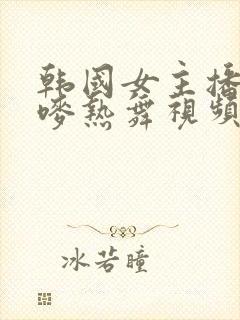 韩国女主播
嘇热舞视频
冰若瞳